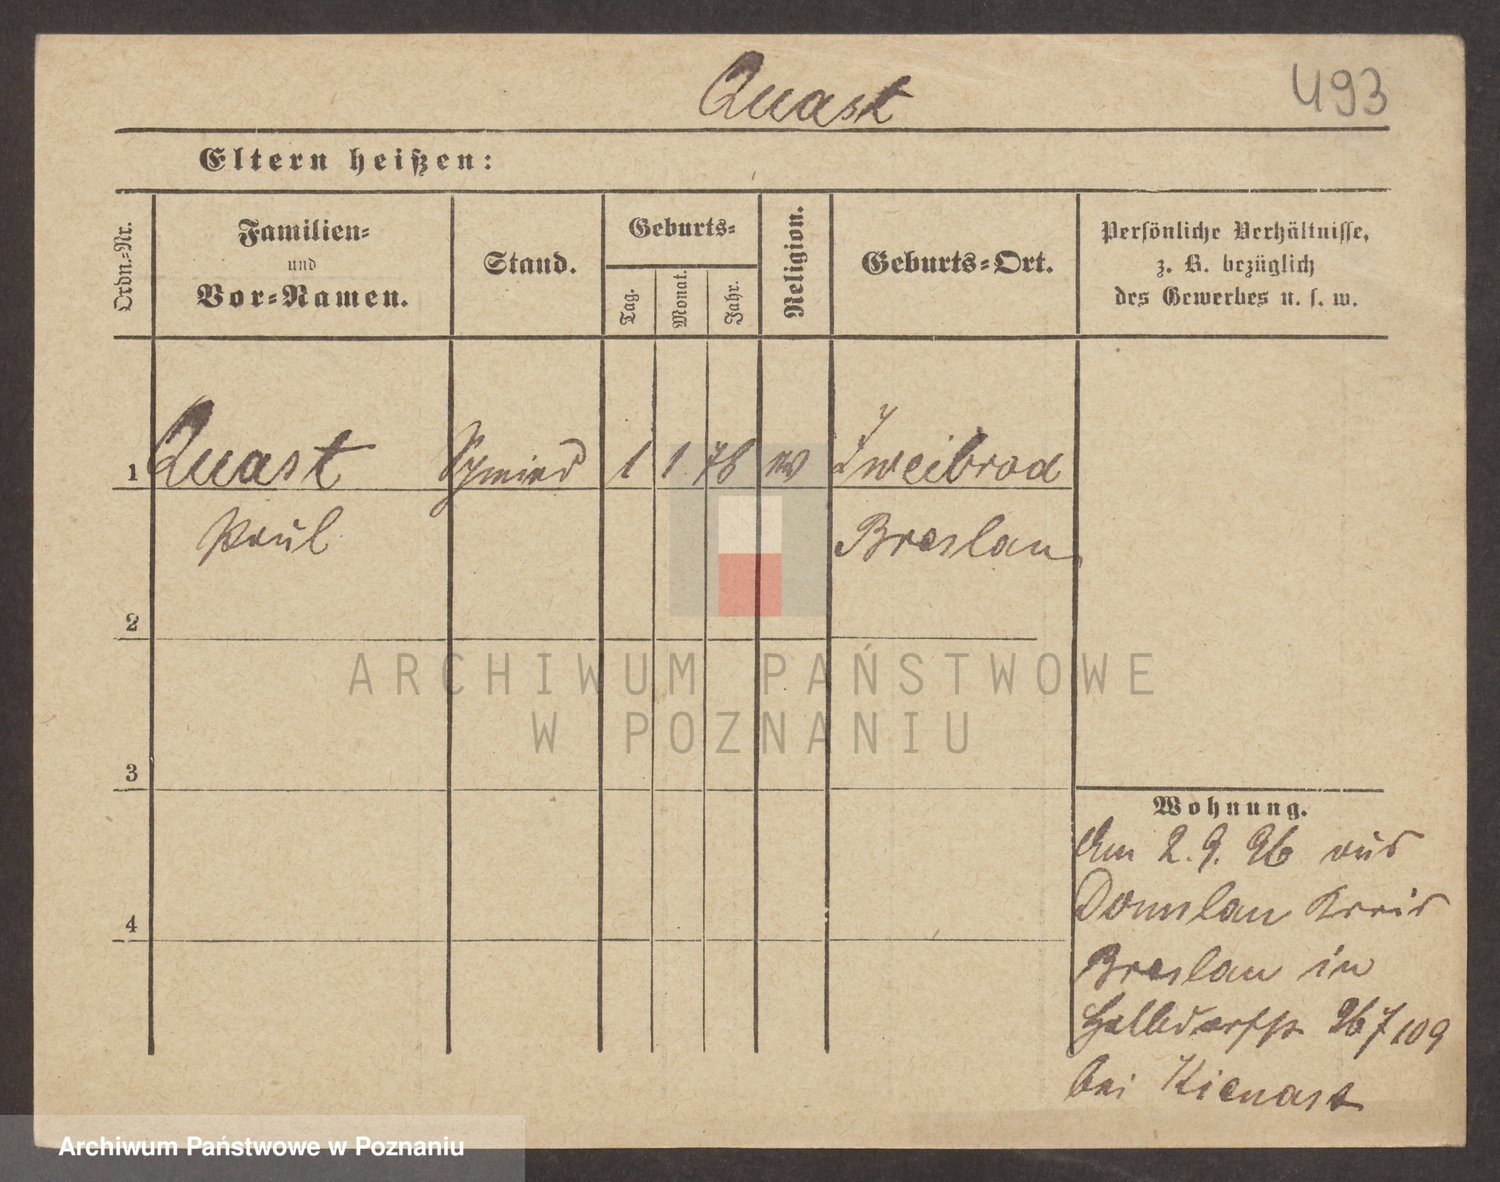 Quast
493
Eltern heißen:
Ordn.-Nr.
Familien-
und
Vor-Namen.
Stand.
Geburts-
Tag.
Monat.
Jahr.
Religion.
Geburts-Ort.
Persönliche Verhältnisse,
z. B. bezüglich
des Gewerbes u. s. w.
1 Quast Schmied 1 1 78 ev Zweibrod
Paul Breslau
2
3
4
Wohnung.
Am 2. 9. 96 aus
Domslau Kreis
Breslau in
109
bei Kienast
ARCHIWUM PAŃSTWOWE
W POZNANIU
Archiwum Państwowe w Poznaniu